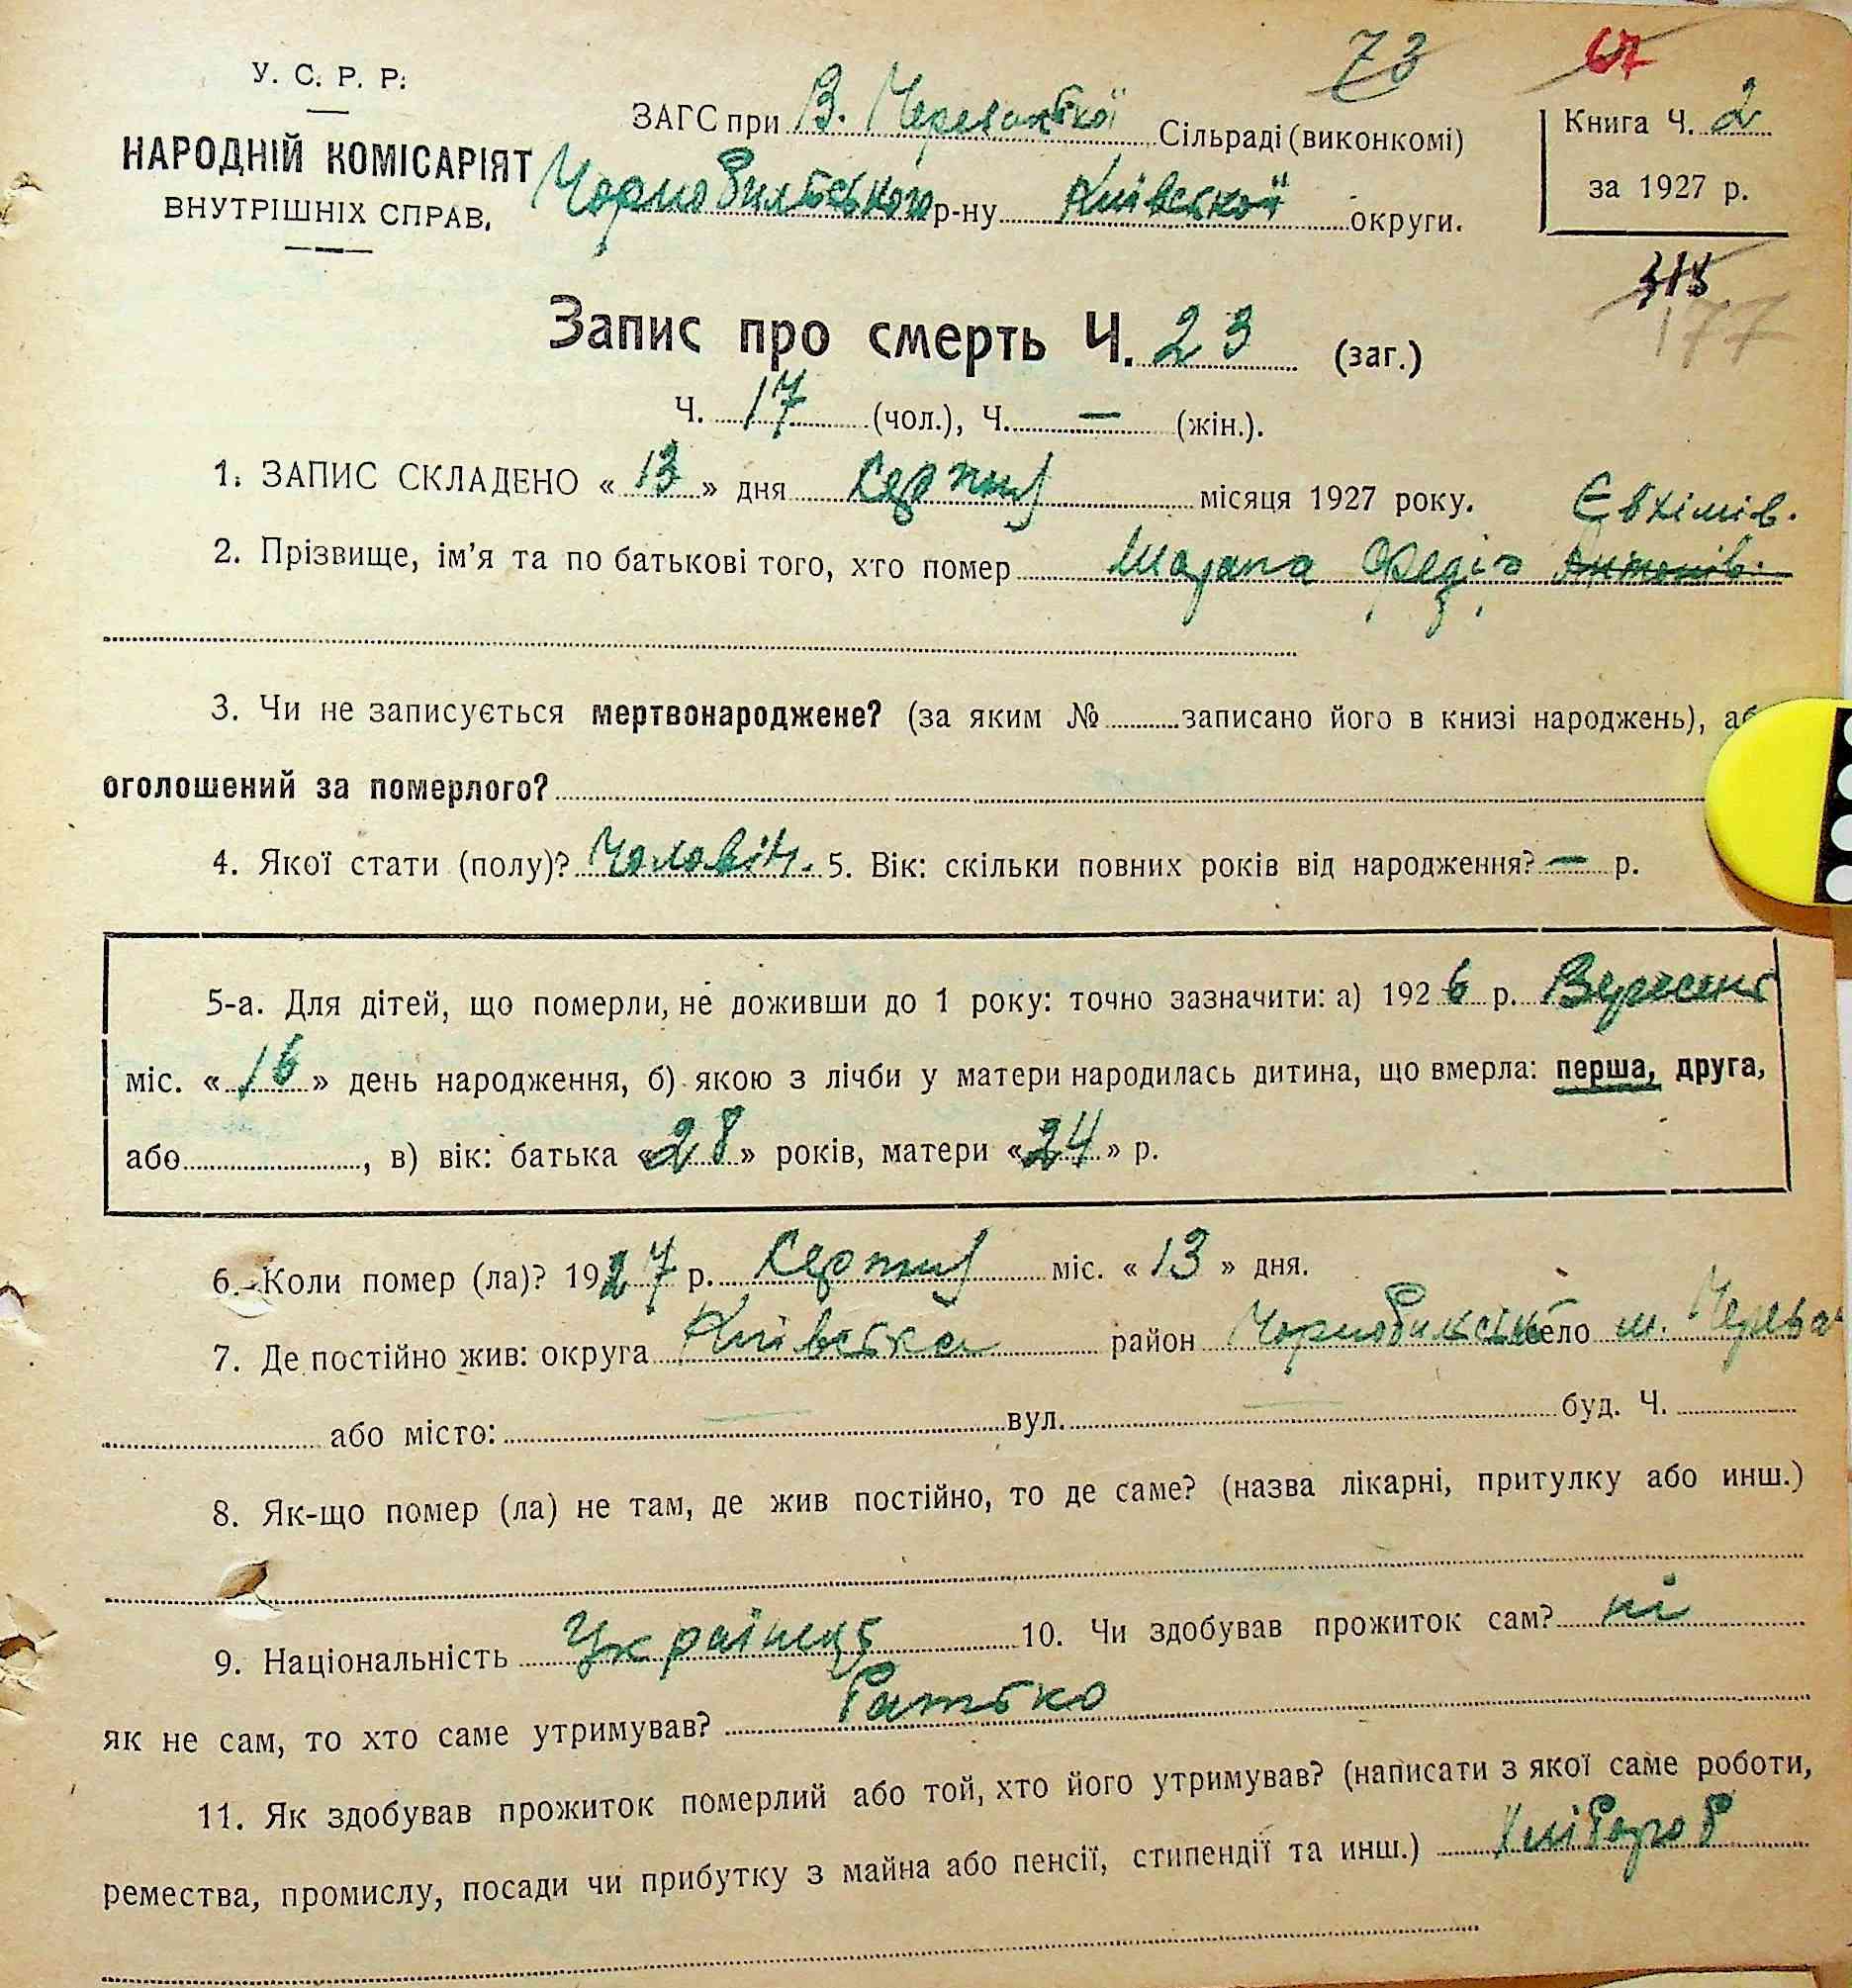 73 67
У. С. Р. Р.
ЗАГС при В. Черевацької Сільраді (виконкомі)
Книга Ч. 2
НАРОДНІЙ КОМІСАРІЯТ
ВНУТРІШНІХ СПРАВ.
Чорнобильського р-ну Київської округи.
за 1927 р.
313
177
Запис про смерть Ч. 23 (заг.)
Ч. 17 (чол.), Ч. — (жін.).
1. ЗАПИС СКЛАДЕНО « 13 » дня Серпня місяця 1927 року.
Євхімів.
2. Прізвище, ім'я та по батькові того, хто помер Федір Антонів.
3. Чи не записується мертвонароджене? (за яким № записано його в книзі народжень), або
оголошений за померлого?
4. Якої стати (полу)? Чоловіч. 5. Вік: скільки повних років від народження? — р.
5-а. Для дітей, що померли, не доживши до 1 року: точно зазначити: а) 1926 р. Вересня
міс. « 16 » день народження, б) якою з лічби у матери народилась дитина, що вмерла: перша, друга,
або , в) вік: батька « 28 » років, матери « 24 » р.
6. Коли помер (ла)? 1927 р. Серпня міс. « 13 » дня.
7. Де постійно жив: округа Київська район Чорнобильськ село м. Черева
або місто: — вул. — буд. Ч.
8. Як-що помер (ла) не там, де жив постійно, то де саме? (назва лікарні, притулку або инш.)
9. Національність Українець 10. Чи здобував прожиток сам? ні
як не сам, то хто саме утримував? Батько
11. Як здобував прожиток померлий або той, хто його утримував? (написати з якої саме роботи,
ремества, промислу, посади чи прибутку з майна або пенсії, стипендії та инш.) Хлібороб